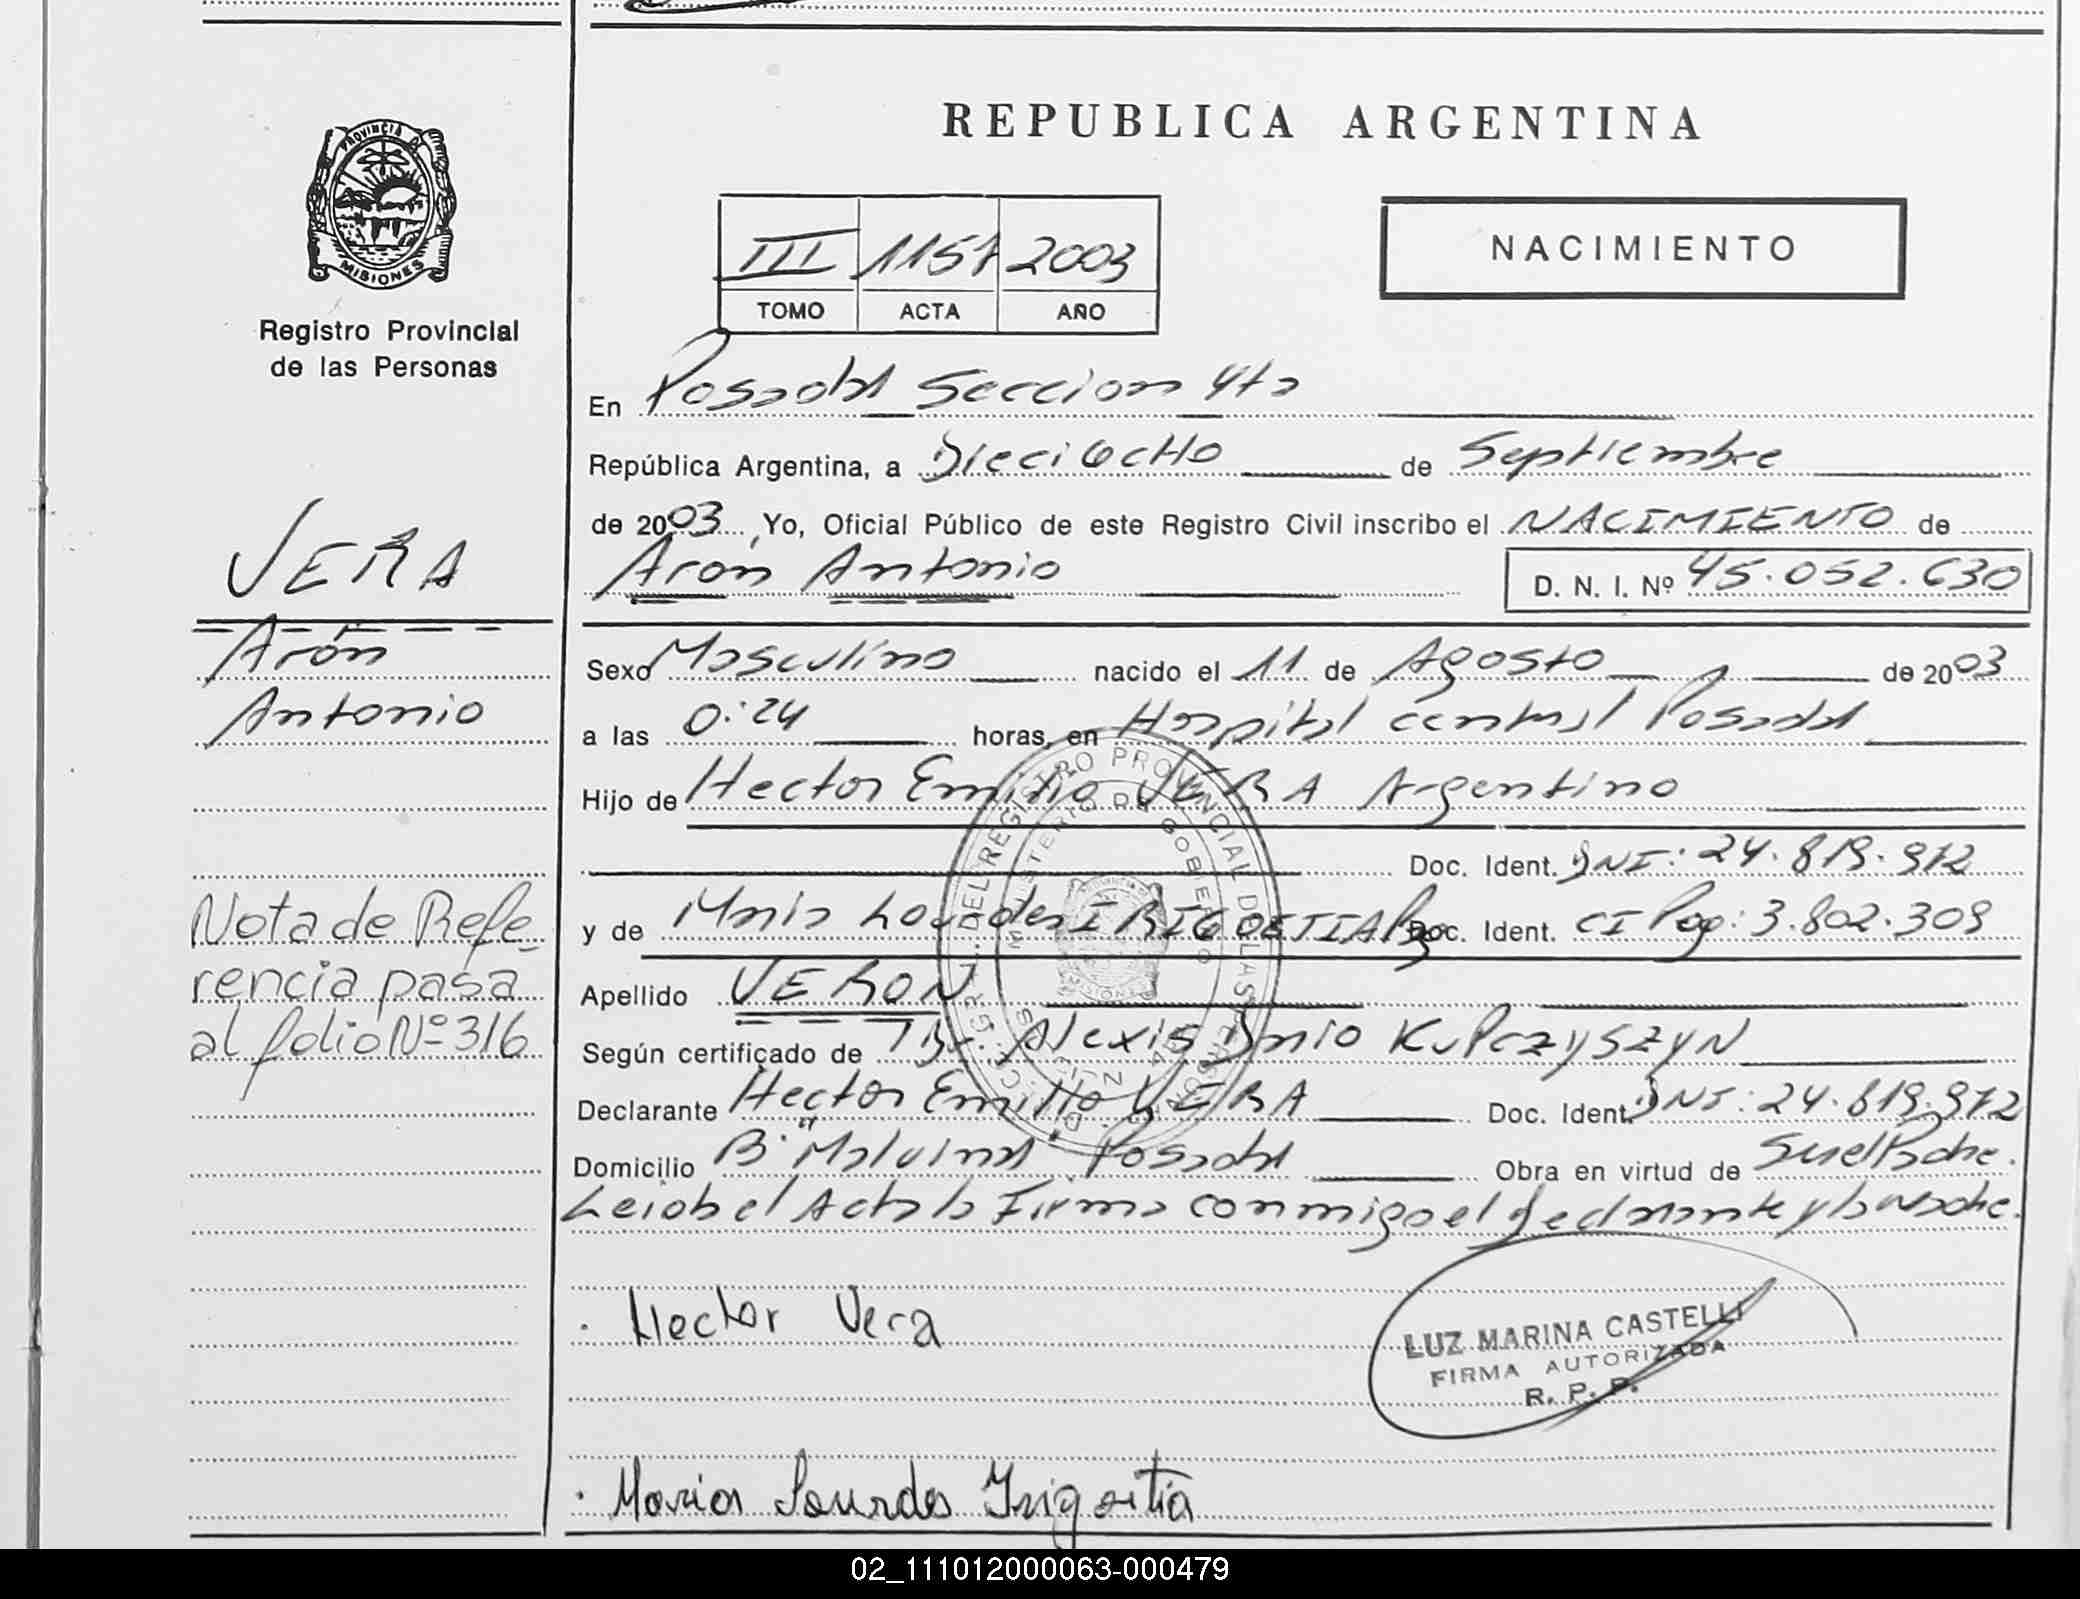 REPUBLICA ARGENTINA
PROVINCIA DE
MISIONES
Registro Provincial
de las Personas
III 1157 2003
TOMO ACTA AÑO
NACIMIENTO
En Posadas Seccion 4ta
República Argentina, a Dieciocho de Septiembre
de 2003, Yo, Oficial Público de este Registro Civil inscribo el NACIMIENTO de
Aron Antonio D. N. I. Nº 45.052.630
VERA
Arón
Antonio
Sexo Masculino nacido el 11 de Agosto de 2003
a las 0:24 horas, en Hospital central Posadas
Hijo de Hector Emilio VERA Argentino
Doc. Ident. DNI: 24.819.972
y de Maria Lourdes IRIGOETIA Doc. Ident. CI Pog: 3.802.309
Apellido VERON
Según certificado de Dr. Alexis Dario KUPCZYSZYN
Declarante Hector Emilio VERA Doc. Ident. DNI: 24.819.972
Domicilio Bº Malvinas Posadas Obra en virtud de Ser el Padre.
Leida el Acta la Firma conmigo el declarante y la madre.
Nota de Refe-
rencia pasa
al folio Nº 316
DEL REGISTRO PROVINCIAL DE LAS PERSONAS
MINISTERIO DE GOBIERNO
Hector Vera
LUZ MARINA CASTELLI
FIRMA AUTORIZADA
R. P. P.
Maria Lourdes Irigoitia
02_111012000063-000479